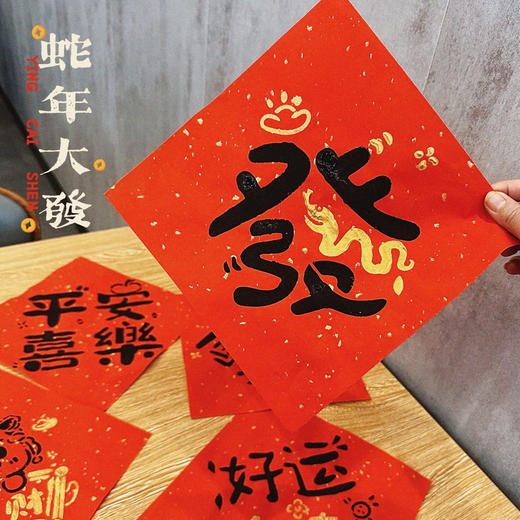 蛇年大發
YING CAI SHEN
發
平安
喜樂
好運